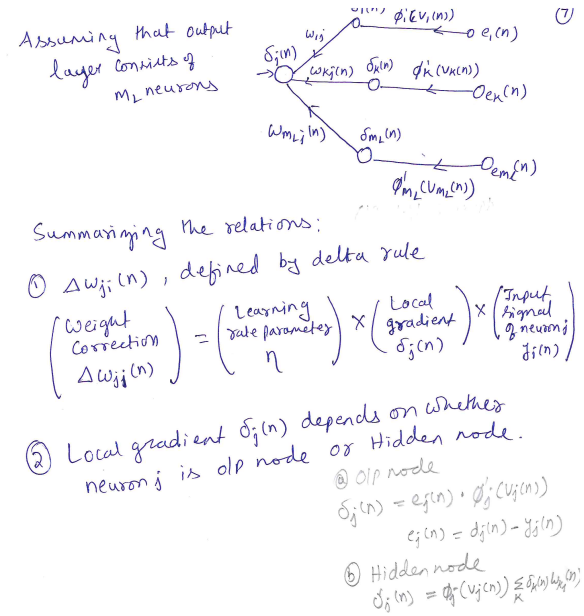 ⑦
Assuming that output
layer consists of
m_L neurons
δ₁(n) φ'₁(v₁(n))
e₁(n)
w₁j
δj(n)
wkj(n) δk(n) φ'k(vk(n))
ek(n)
wm_Lj(n) δm_L(n)
em_L(n)
φ'm_L(vm_L(n))
Summarizing the relations:
① Δwji(n), defined by delta rule
(Weight Correction Δwji(n)) = (Learning rate parameter η) × (Local gradient δj(n)) × (Input signal of neuron j yi(n))
② Local gradient δj(n) depends on whether
neuron j is o/p node or Hidden node.
ⓐ O/P node
δj(n) = ej(n) · φ'j(vj(n))
ej(n) = dj(n) - yj(n)
ⓑ Hidden node
δj(n) = φ'j(vj(n)) Σk δk(n) wkj(n)